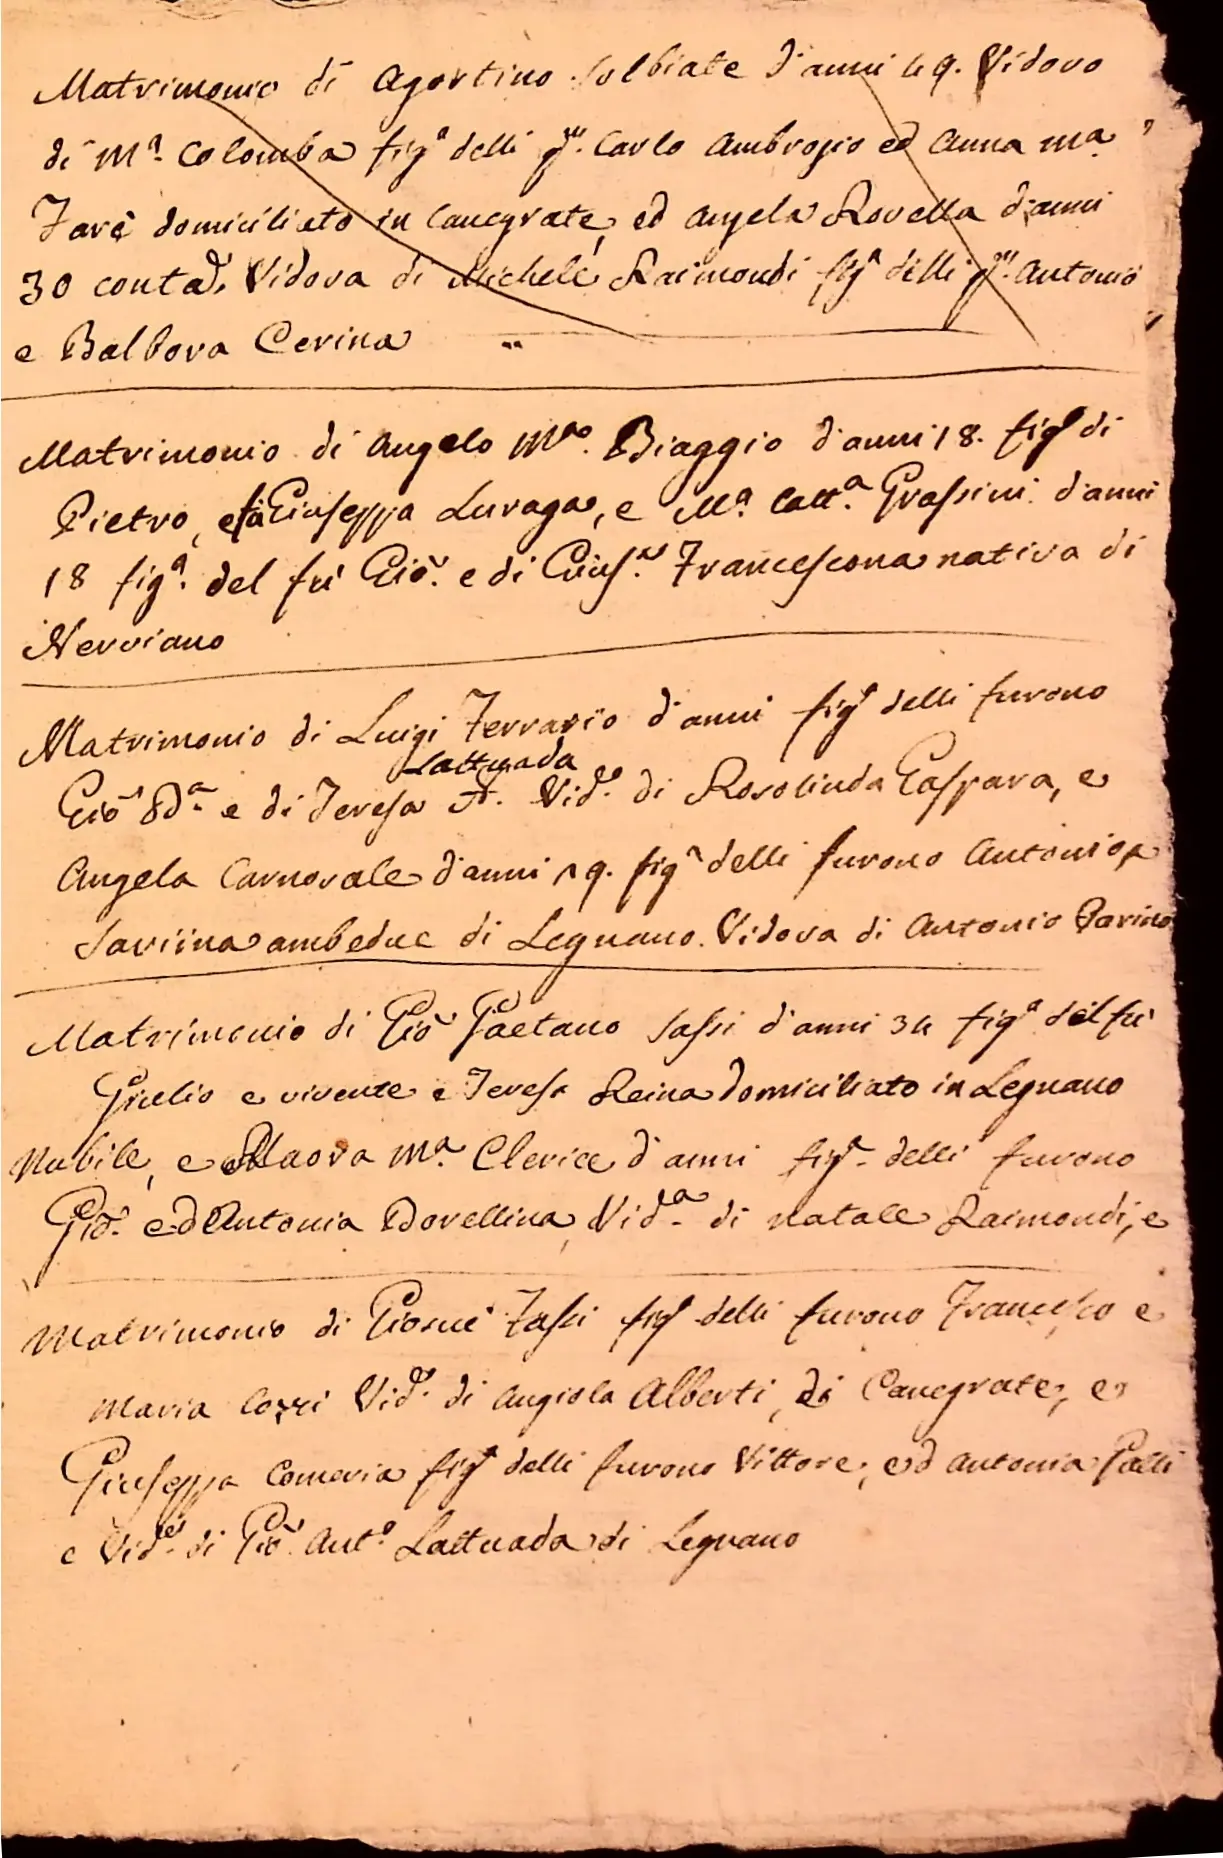 Matrimonio di Agostino Solbiate d'anni 49. Vidovo
di Mª Colomba figª delli qm. Carlo Ambrogio ed Anna Mª
Farè domiciliato in Canegrate, ed Angela Rovella d'anni
30 contad.ª Vidova di Michele Raimondi figª delli qm. Antonio
e Balbora Cerina
Matrimonio di Angelo Mª. Biaggio d'anni 18. figº di
Pietro, e fù Giuseppa Luraga, e Mª. Cattª. Grassini d'anni
18 figª. del fù Giò. e di Giusª. Francescona nativa di
Nerviano
Matrimonio di Luigi Ferrario d'anni figº delli furono
Lattuada
Giò Bdª e di Teresa Vidº. di Rosolinda Gaspara, e
Angela Carnovale d'anni 19. figª delli furono Antonio, e
Saviina ambedue di Legnano. Vidova di Antonio Parino
Matrimonio di Giò Gaetano Sassi d'anni 34 figº del fù
Giulio e vivente e Teresa Reina domiciliato in Legnano
Nubile, e Mª. Clerice d'anni figª. delli furono
Giò. ed Antonia Dovellina, Vidª. di Natale Raimondi, e
Matrimonio di Giosuè Tassi figº delli furono Francesco e
Maria Cozzi Vidº. di Angiola Alberti, di Canegrate, e
Giuseppa Comeria figª delli furono Vittore, ed Antonia
e Vidª. di Giò. Antº Lattuada di Legnano